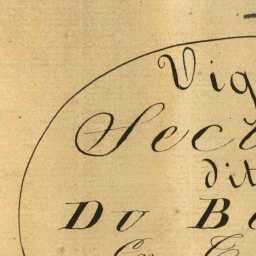 Vig
Sec
dit
Du B